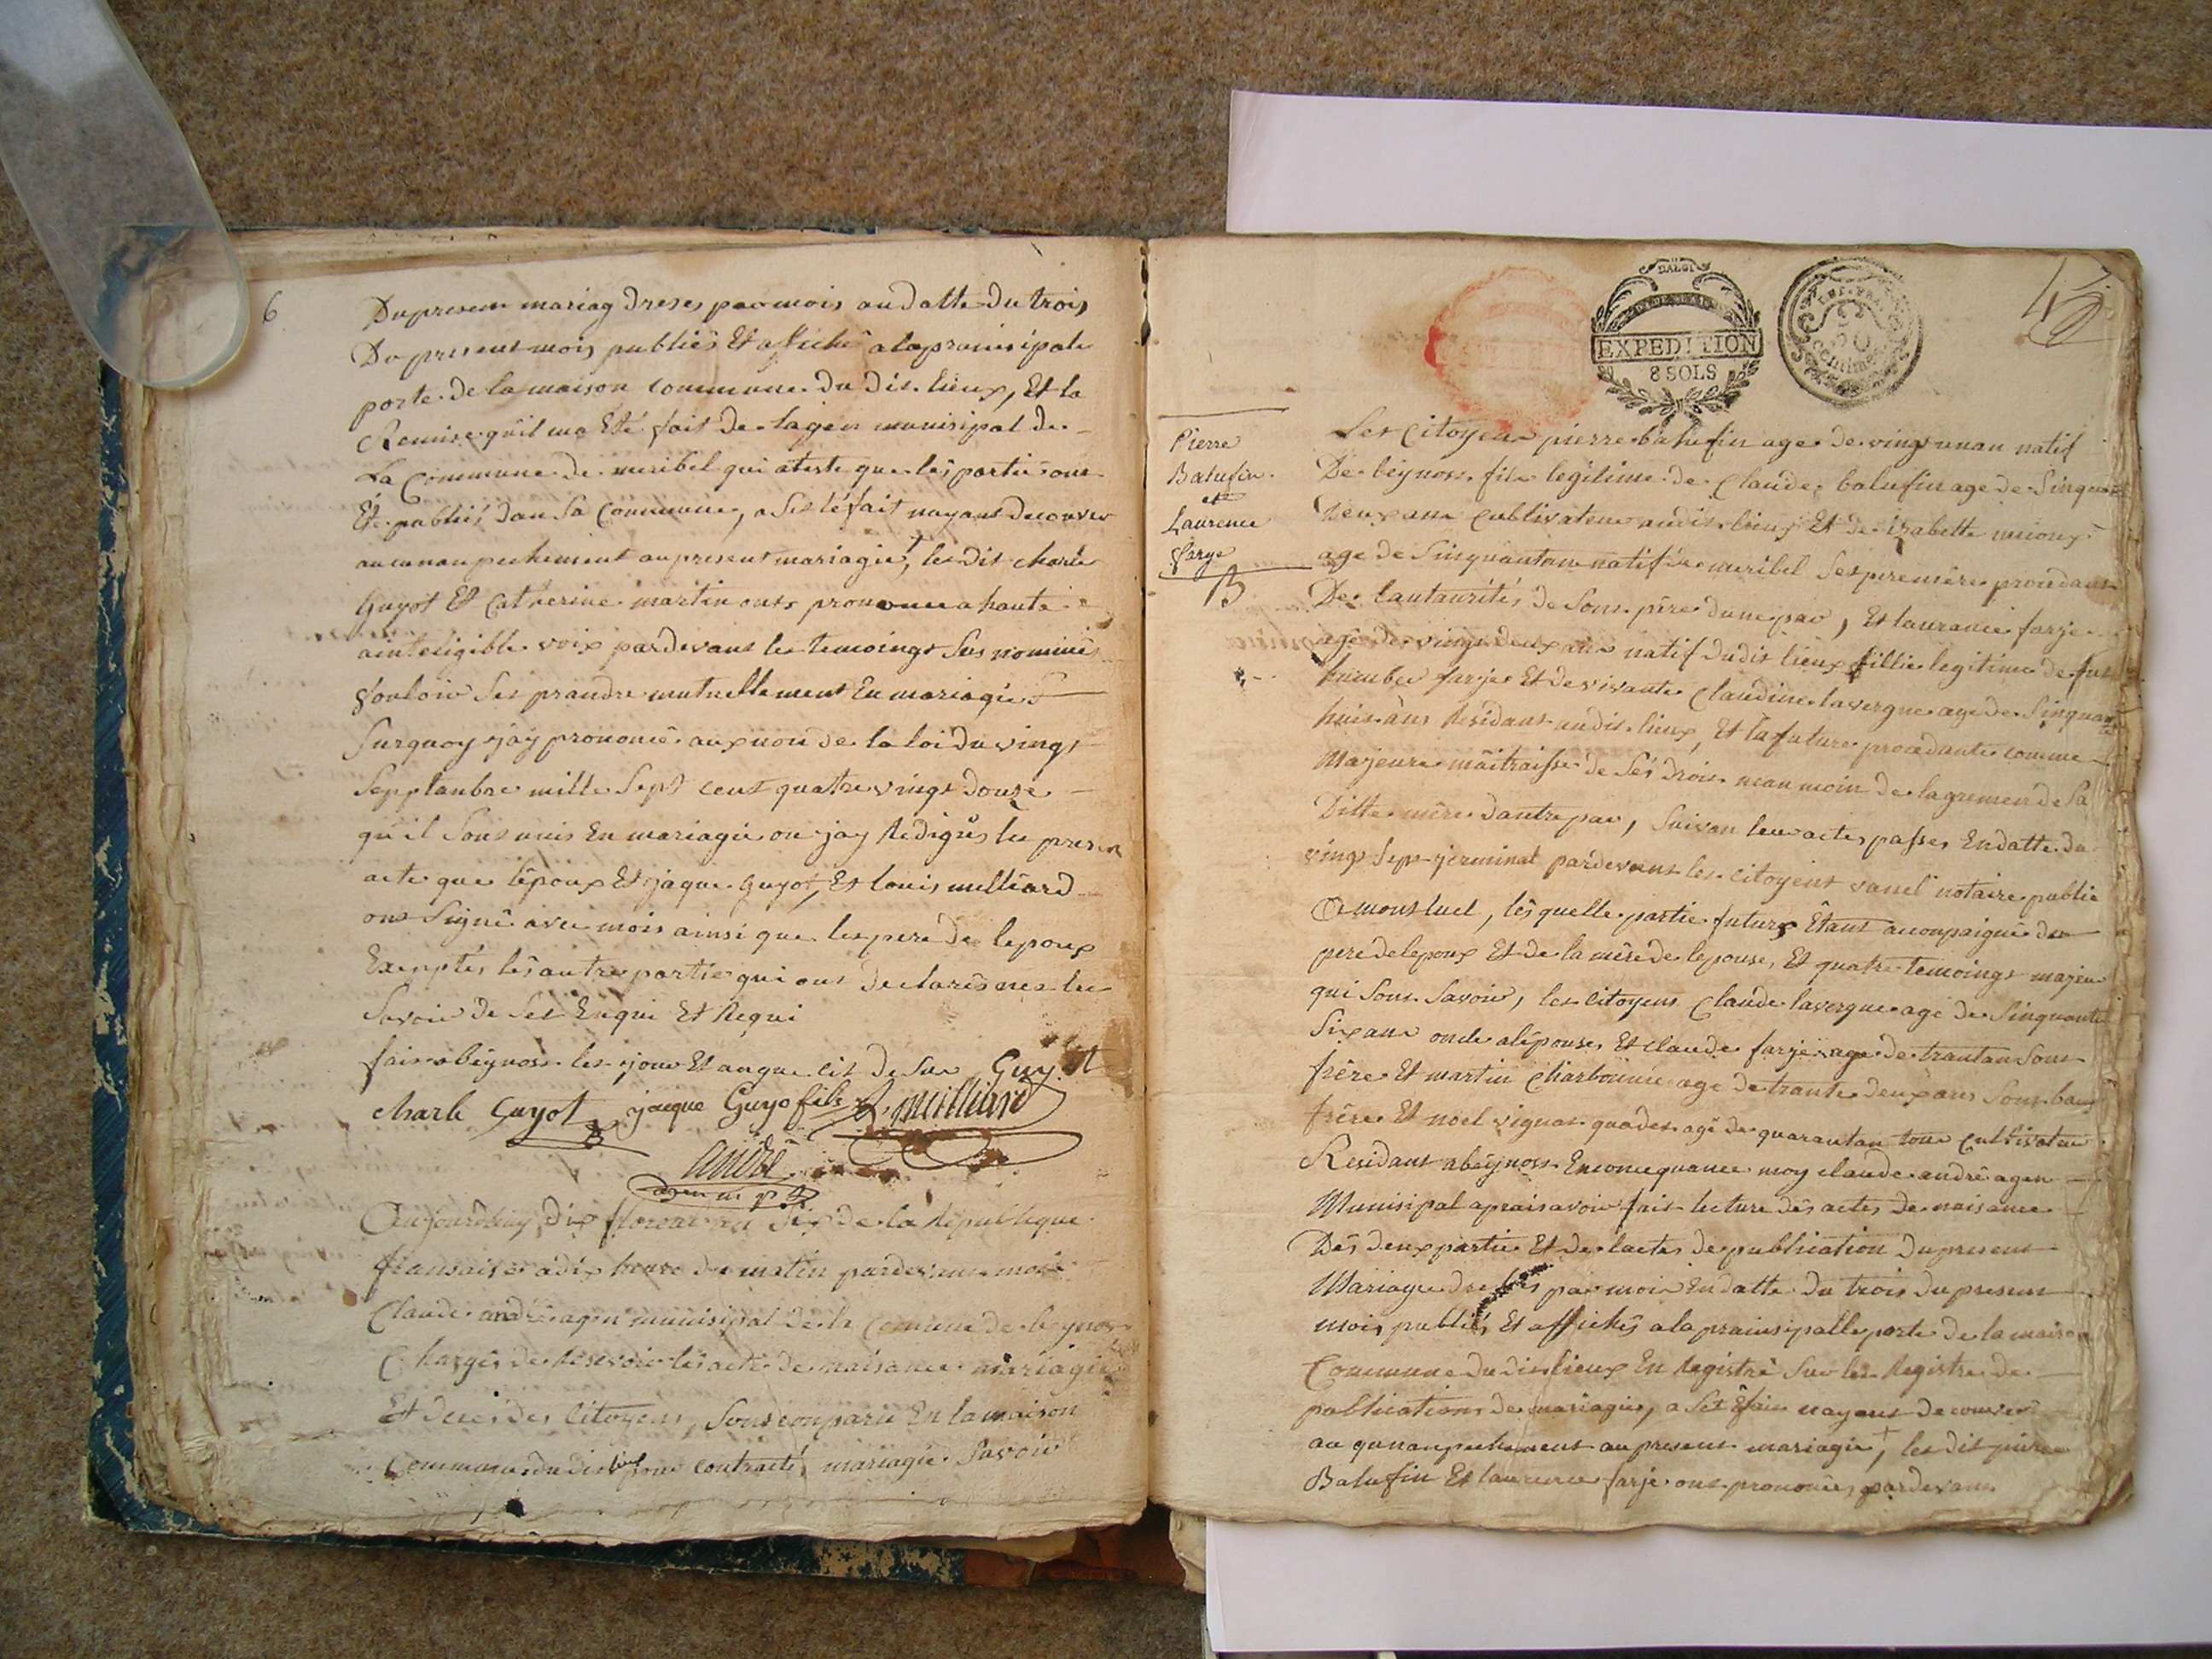 6
Dupresent mariag dreses par mois au datte du trois
Du present mois publiés Et affiché a la prainsipale
porte de la maison commune du dit lieux, Et la
Remise quil ma Eté fait de lagen munisipal de
La Commune de meribel qui ateste que les partie ont
Eté publiés dan sa Commune, a set éfait nayant decouver
au cunan pechement au present mariagie, les dit charle
Guyot Et Catherine martin ont prononcé a haute
ainteligible voix pardevant les temoingt sus nommés
vouloir ses prandre mutuellement En mariagies
Surquoy jay prononcé aux non de la loi du vingt
Sepptanbre mille Sept cent quatre vingt douze
qu'il sont unis En mariagie on jay Rédigés les present
acte que lépoux Et jaque guyot, Et louis milliard
ont Signé avec mois ainsi que les pere de lepoux
Exeptés lés autre partie qui ont declarés nes les
Savoir de ses Enqui Et Requi
fait a béynost les jour Et an que cit desur Guyot
charle Guyot jacque Guyo fils L. milliard
André
agen m pl
Aujourdhuy dix floreal an six de la République
fransaise a dix heure du matin pardevant moi
Claude andré agen munisipal de la Comune de beynost
Chargés de Resevoir lés acte de naisance mariagie
Et décés des Citoyens, Sont conparu En la maison
Commune du dit lieux pour contracté mariagie Savoir
DALOI
EXPEDITION
8 SOLS
REP. FRA.
50
centimes
Pierre
Balufin
et
Laurence
farge
Les Citoyens pierre balufin age de vingt un an natif
De beynost fils legitime de Claude balufin age de Sinquante
Deux ans Cultivateur audit lieux Et de izabette
age de Sinquantan natif de meribel Ses premiére procedant
De lautaurités de Sont pére dune par, Et laurance farje
agé de vingt deux ans natif dudit lieux fillie legitime de fut
humber farje Et de vivante Claudine lavergne age de Sinquante
huit ans Residant audit lieux, Et la future procedante comme
Majeure maitraisse de Sés droit nean moin de lagremen de Sa
Ditte mére dautre par, Suivan leur actes passes En datte du
vingt Sept jerminal pardevant les Citoyent notaire public
A montluel, lésquelle partie future Etant accompaigné du
pere de lepoux Et de la mére de lepouse, Et quatre temoingt majeur
qui Sont Savoir, les Citoyens Claude lavergne agé de Sinquante
Six ans oncle a lépouse, Et claude farje age de trantan Sont
frére Et martin Charbonnié age de trante deux ans Sont bau
frére Et noel vignat age de quarantan tous Cultivateur
Residant abéynost Enconcequance moy claude andré agen
Munisipal aprais avoir fait lecture dés actes de naisance
Dés deux partie Et de lactes de publication du present
Mariage dressés par moi En datte du trois du present
mois publiés Et affichés a la prainsipalle porte de la maison
Commune du dit lieux En Registré Sur les Registre de
publications de mariagie, a Set Efait nayant decouvert
au qunanpechement au present mariagie, les dit pierre
Balufin Et laurence farje ont prononcés pardevant